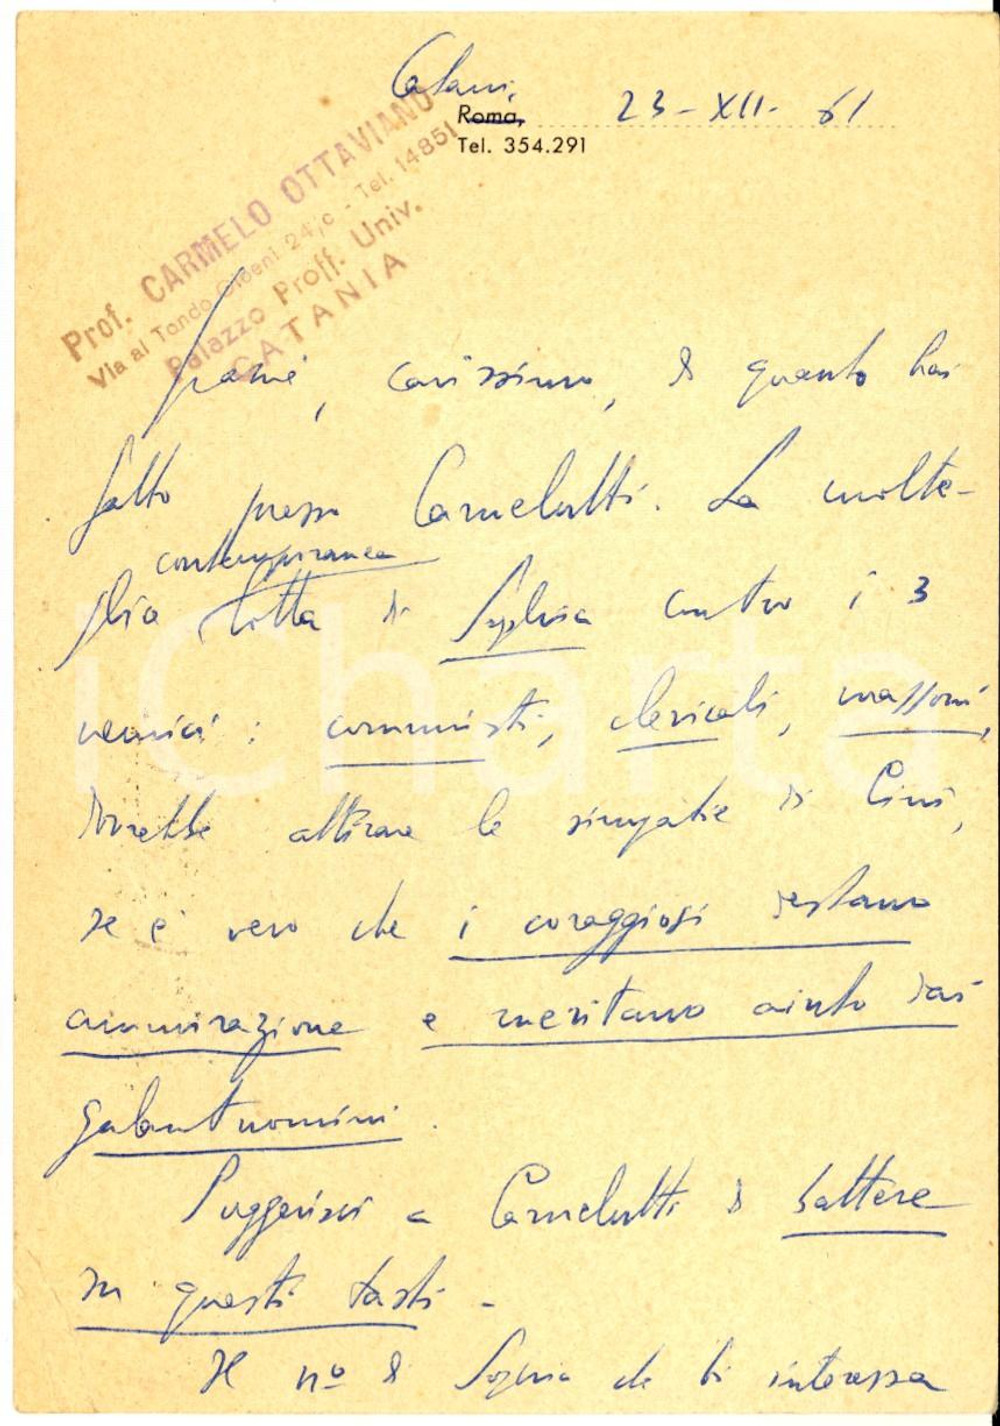 Catania,
Roma, 23-XII-61
Tel. 354.291
Prof. CARMELO OTTAVIANO
Via al Tondo Gioeni 24/c - Tel. 14851
Palazzo Proff. Univ.
CATANIA
Grazie, carissimo, di quanto hai
fatto presso Carnelutti. La molte-
contemporanea
plice lotta di Sophia contro i 3
nemici: communisti, clericali, massoni,
dovrebbe attirare le simpatie di Cini,
se è vero che i coraggiosi destano
ammirazione e meritano aiuto dai
galantuomini.
Suggerisci a Carnelutti di battere
su questi tasti -
Il nº di Sophia che ti interessa
iCharta